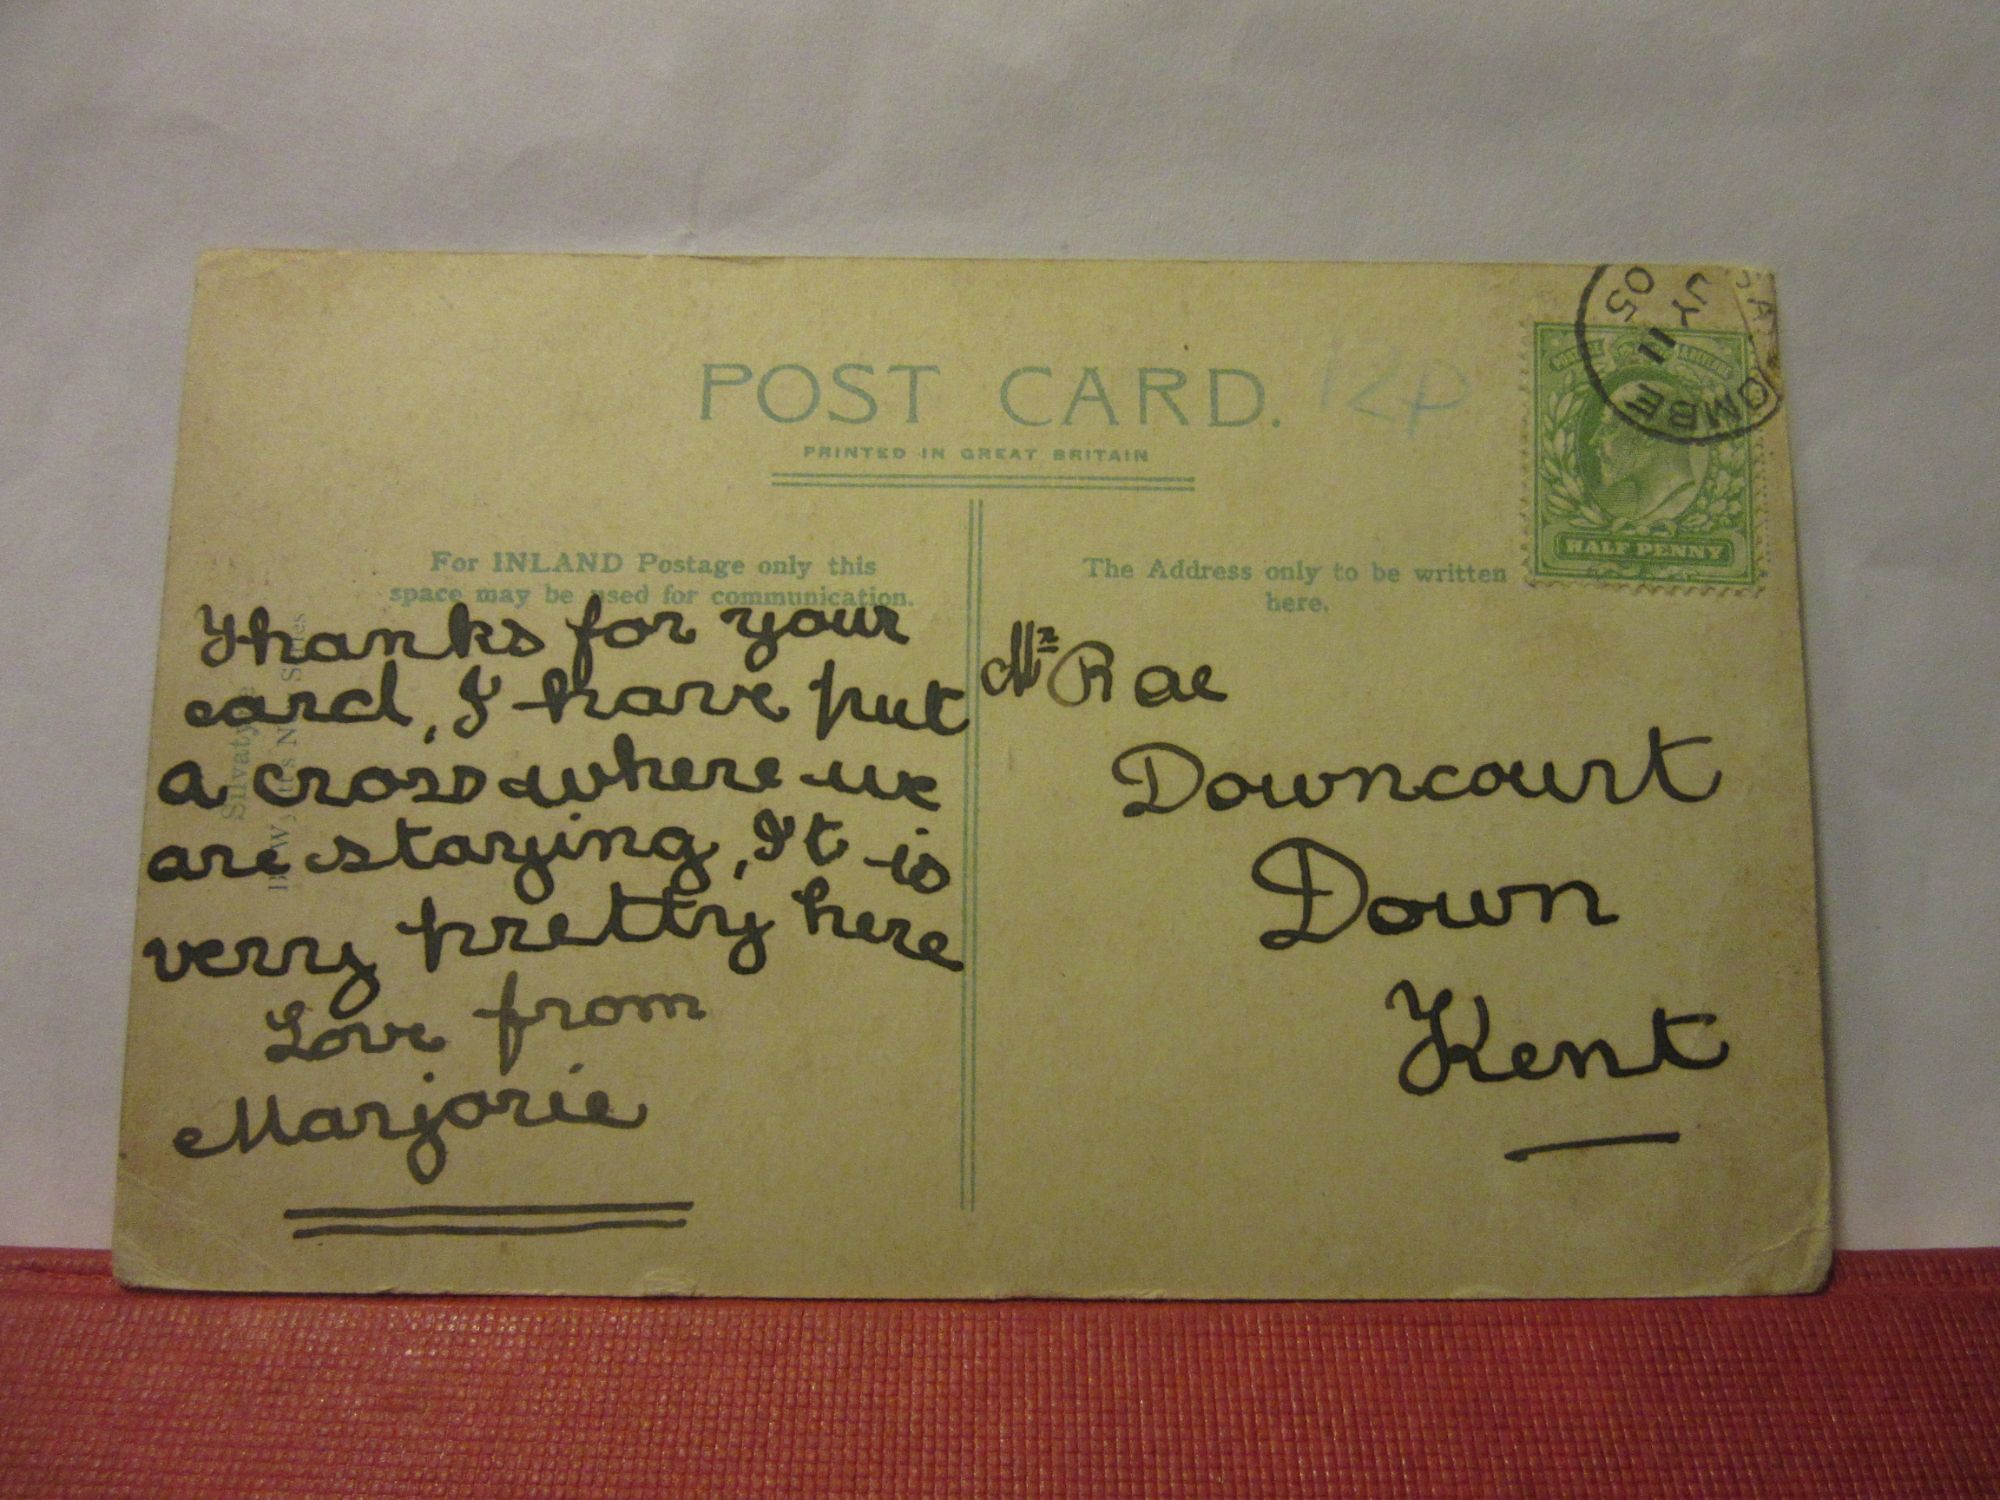 POST CARD.
PRINTED IN GREAT BRITAIN
12p
JY 11
05
OMBE
HALF PENNY
For INLAND Postage only this
space may be used for communication.
The Address only to be written
here.
Thanks for your
card, I have put
a cross where we
are staying, It is
verry pretty here
Love from
Marjorie
Mr Rae
Downcourt
Down
Kent